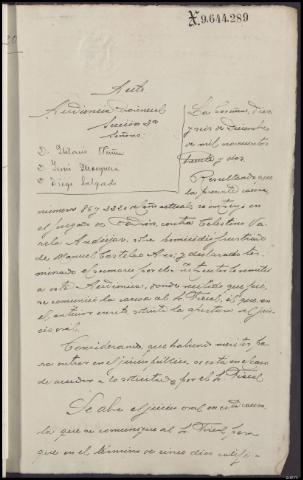 X.9.644.289
Auto
Audiencia Provincial
Sección 2ª
Señores:
D.
" Jesús Mosquera
" Diego Salgado
La Coruña, diez
y seis de Diciembre
de mil novecientos
treinta y dos.
Resultando que
la presente causa,
número 867 del año actual, se instruyó en
el juzgado de contra Celestino Va
rela sobre homicidio frustrado
de Manuel Castelao y declarado ter
minado el sumario por el
a esta Audiencia, donde recibido que fué,
se comunicó la causa al S. Fiscal, el que, en
el, solicita la apertura al jui
cio oral.
Considerando, que habiendo méritos pa
ra entrar en el juicio público, se está en el caso
de acceder a lo solicitado por el S. Fiscal.
Se abre el juicio oral en esta causa
la que se comunique al S. Fiscal para
que en el término de cinco días califi-